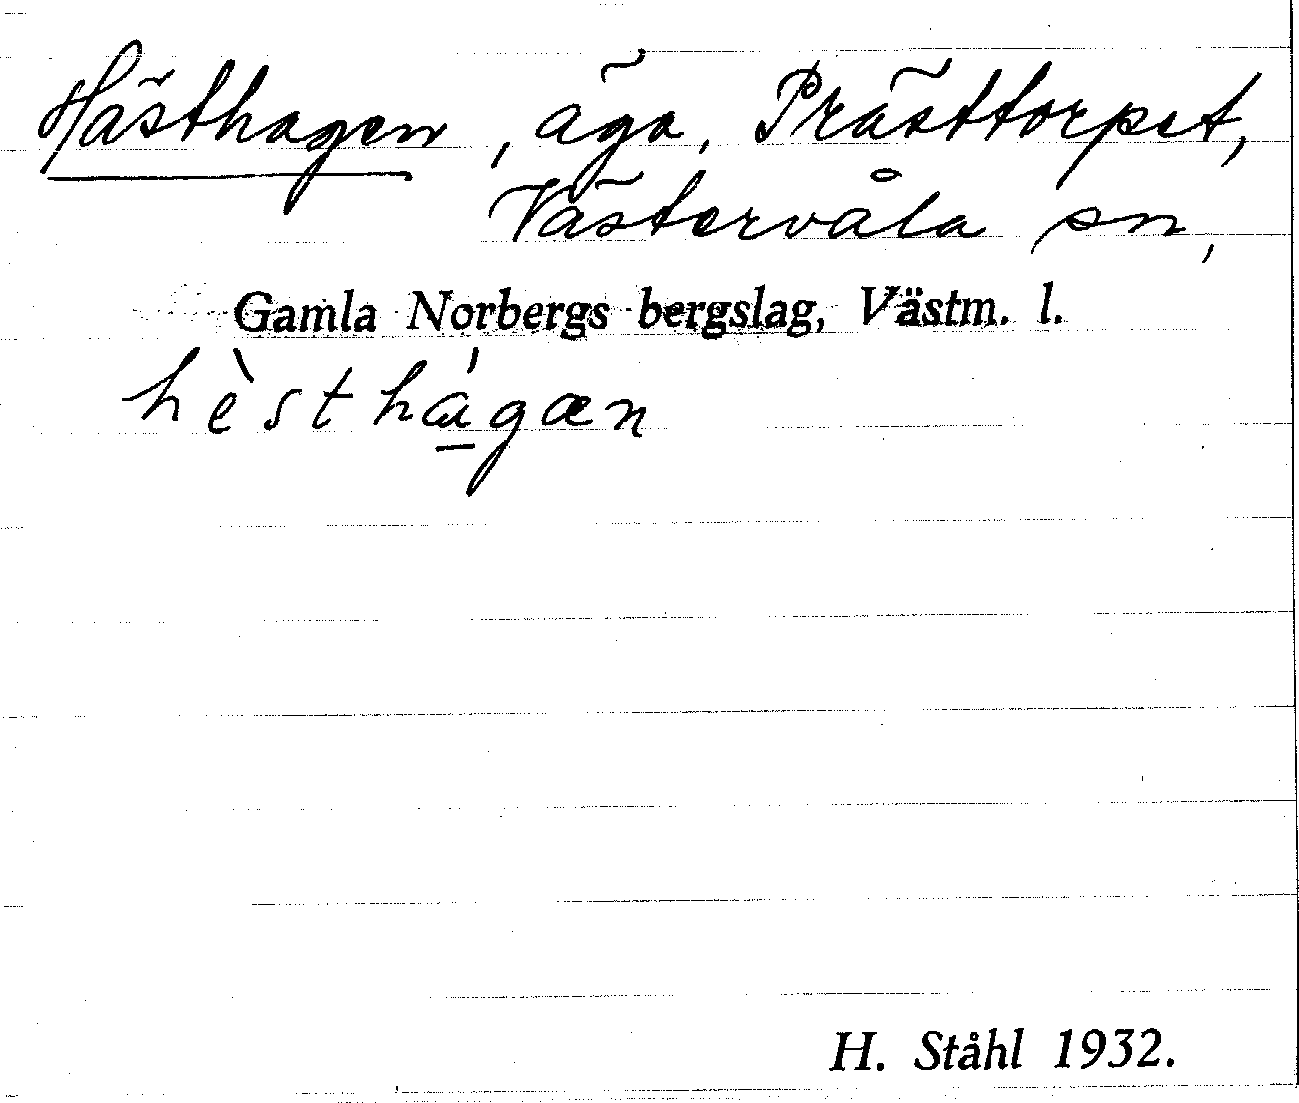 Hästhagen, äga, Prästtorpet,
Västervåla sn,
Gamla Norbergs bergslag, Västm. l.
hèsthá̱gæn
H. Ståhl 1932.